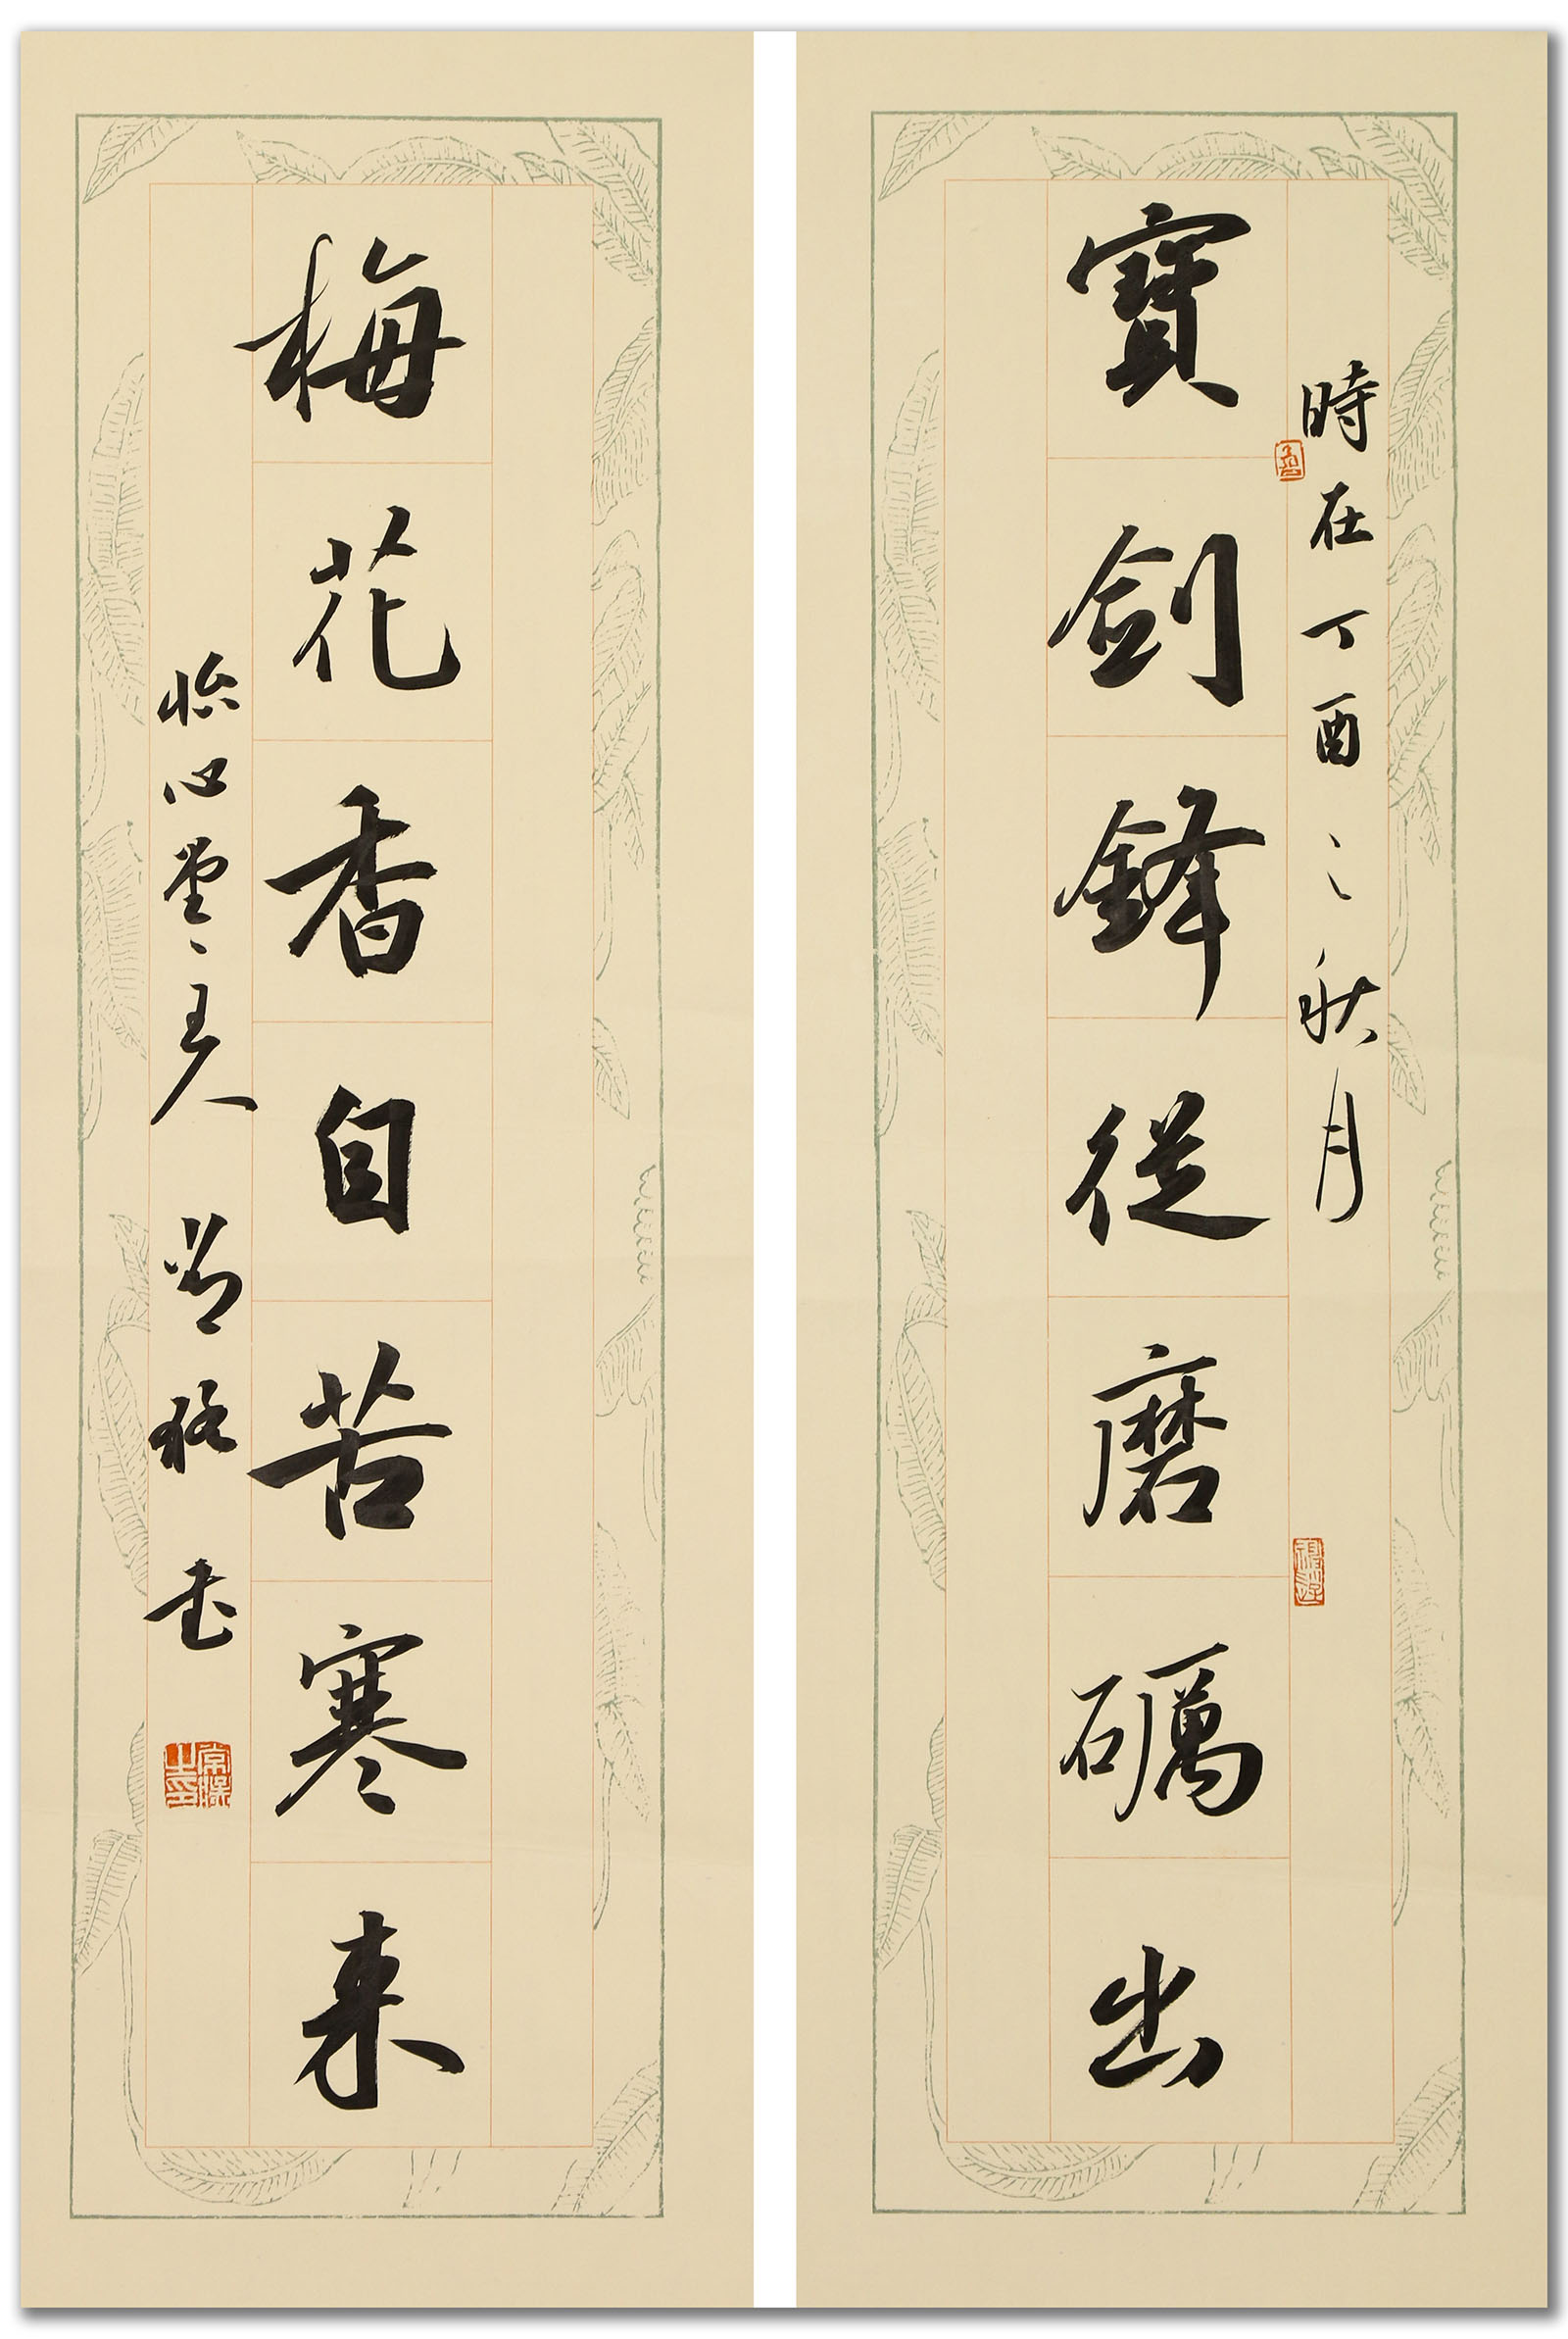 時在丁酉之秋月
寶劍鋒從磨礪出
梅花香自苦寒来
怡心堂主人 常 书